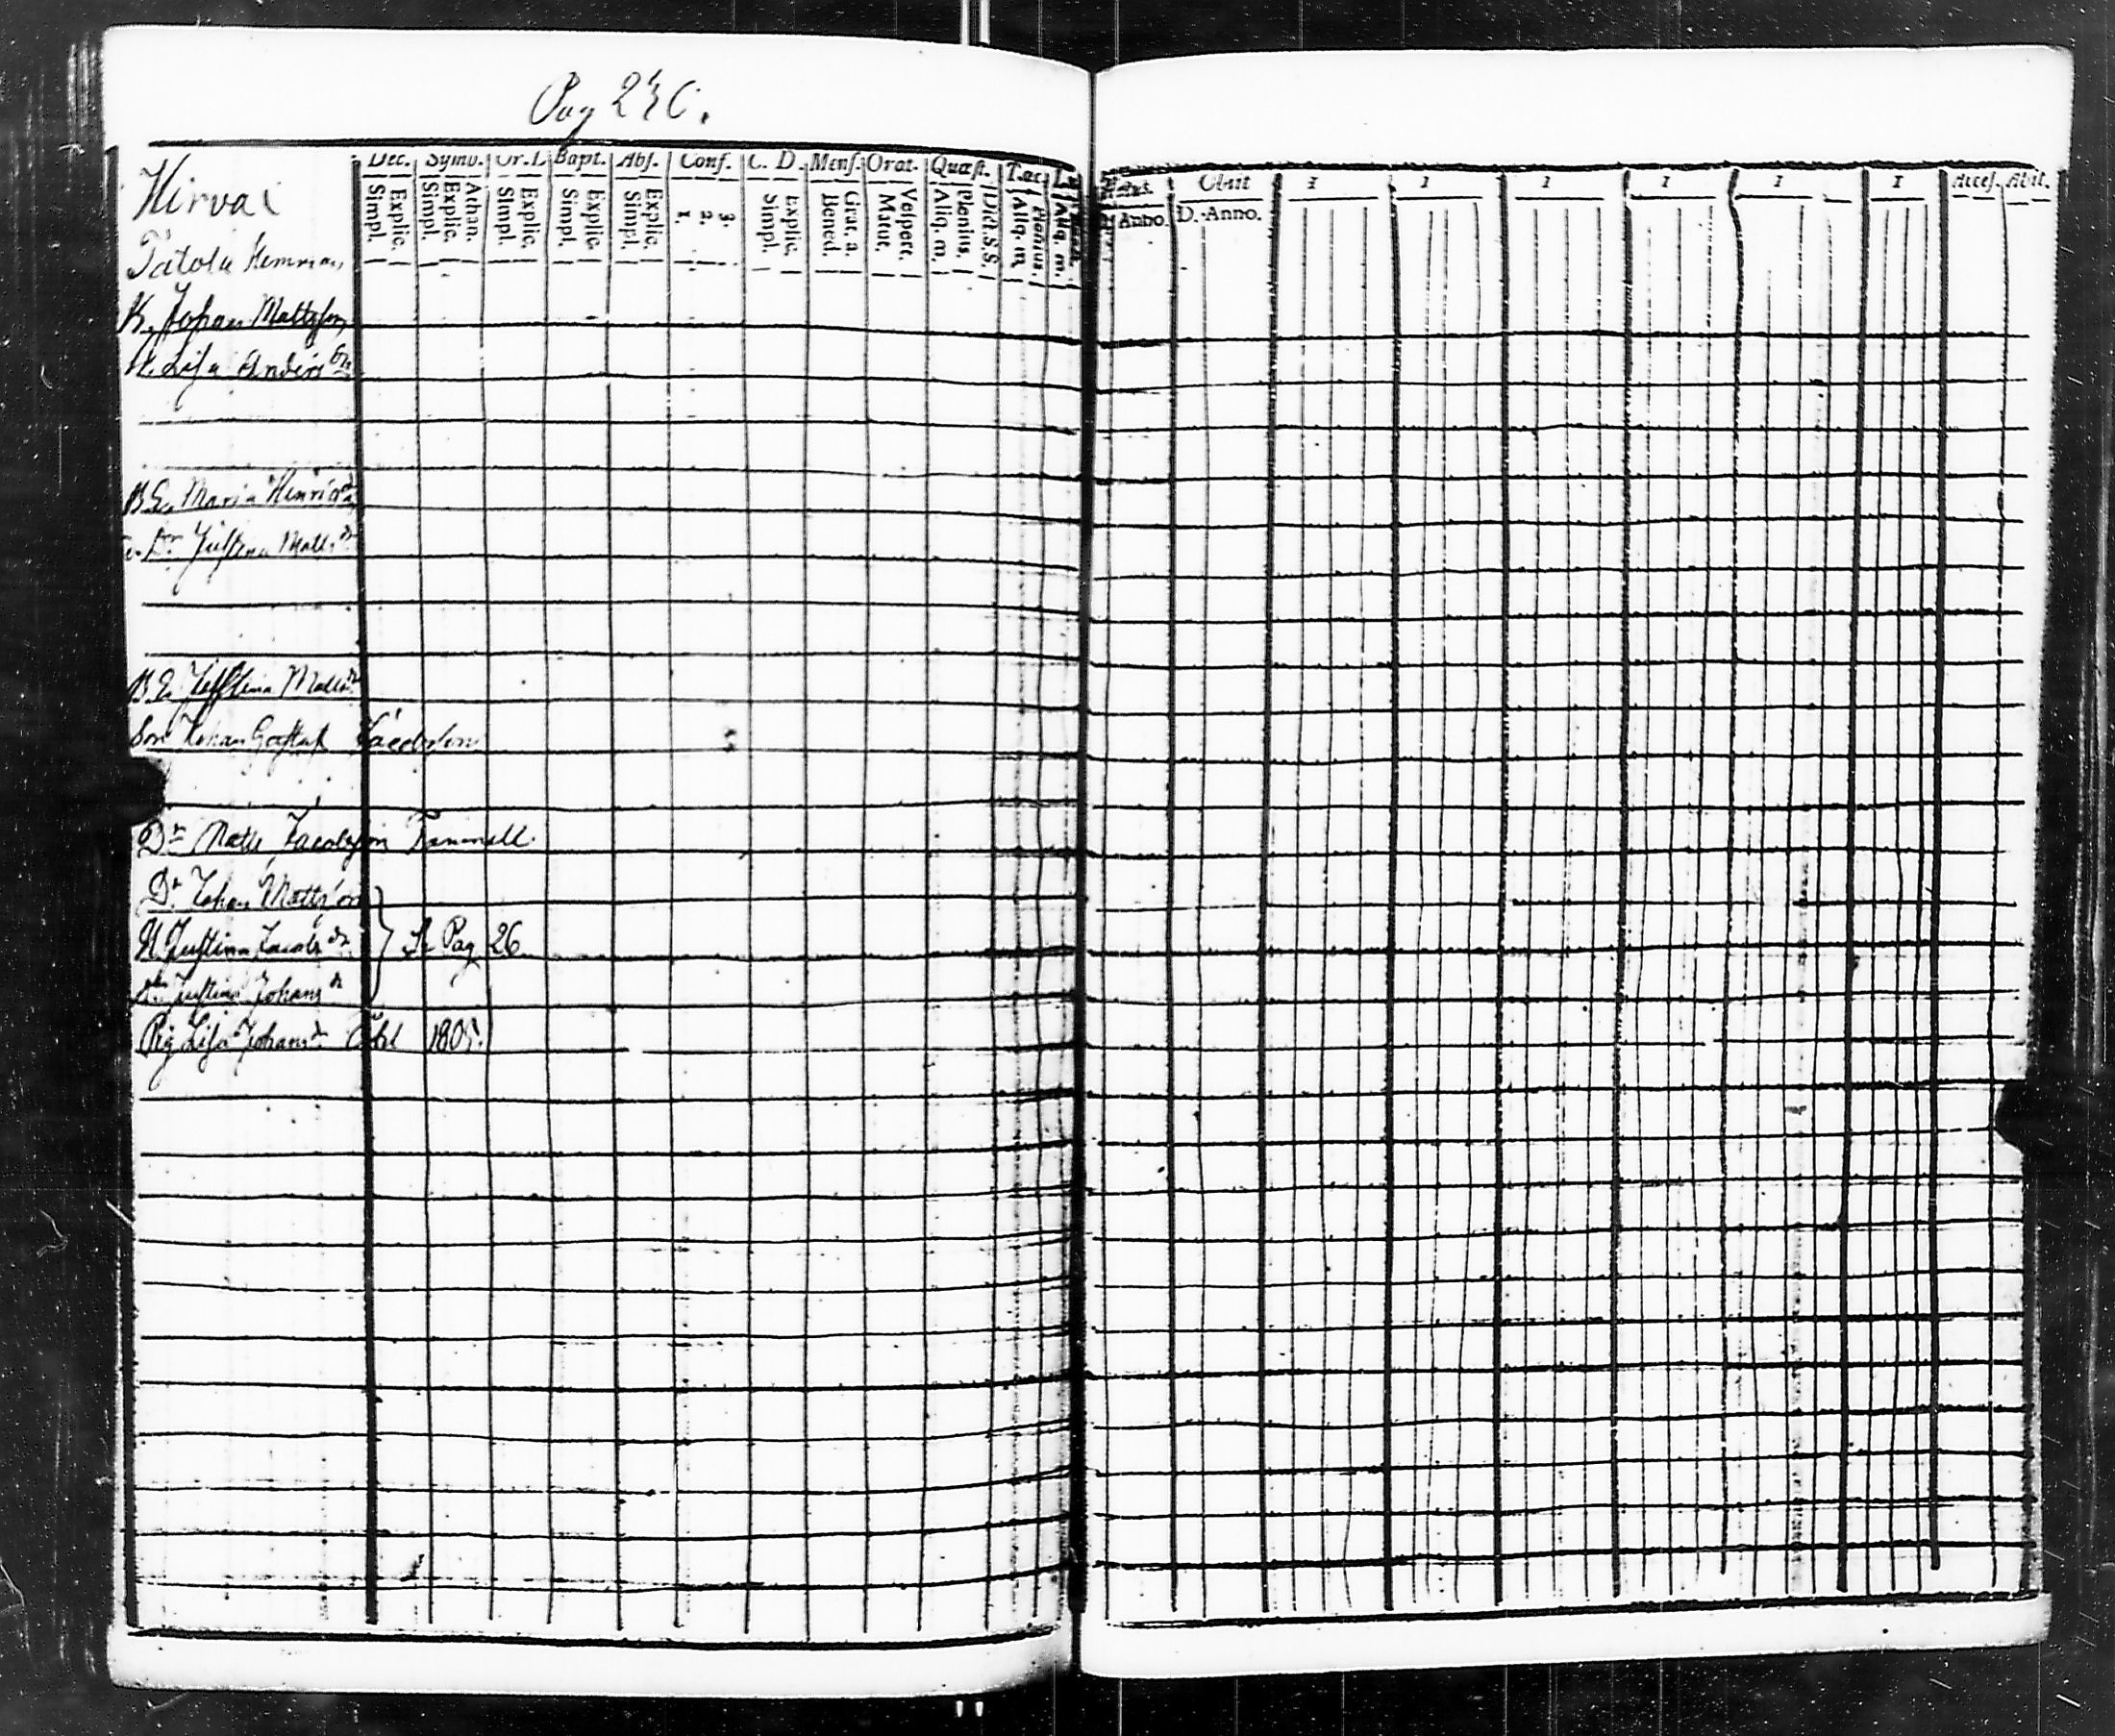 Pag
Dec. Symb. Or.D. Bapt. Abs. Conf. C. D. Mens. Orat. Quæst. T.æc. Status. Obiit 1 1 1 1 1 1 Acces. Abit.
Simpl. Explic. Simpl. Explic. Athan. Simpl. Explic. Simpl. Explic. Simpl. Explic. 1. 2. 3. Simpl. Explic. Bened. Grat. a. Matut. Vespert. Aliq. m. Plenius. Dict. S.S. Aliq. m. Plenius. Aliq. m. Anno. D. Anno.
Hirvai
Tatola Hemman
B. Johan Mattsson
H. Lisa Anders dr
B.E. Maria Henrics dr
Dr Justina Matts dr
B.E. Justina Matts dr
Son Johan Gustaf Jacobsson
Dr Matts Jacobsson
Dr Johan Mattsson
H. Justina Jacobs dr Se Pag 26
Justina Johans dr
Pig Lisa Johans dr 1805.